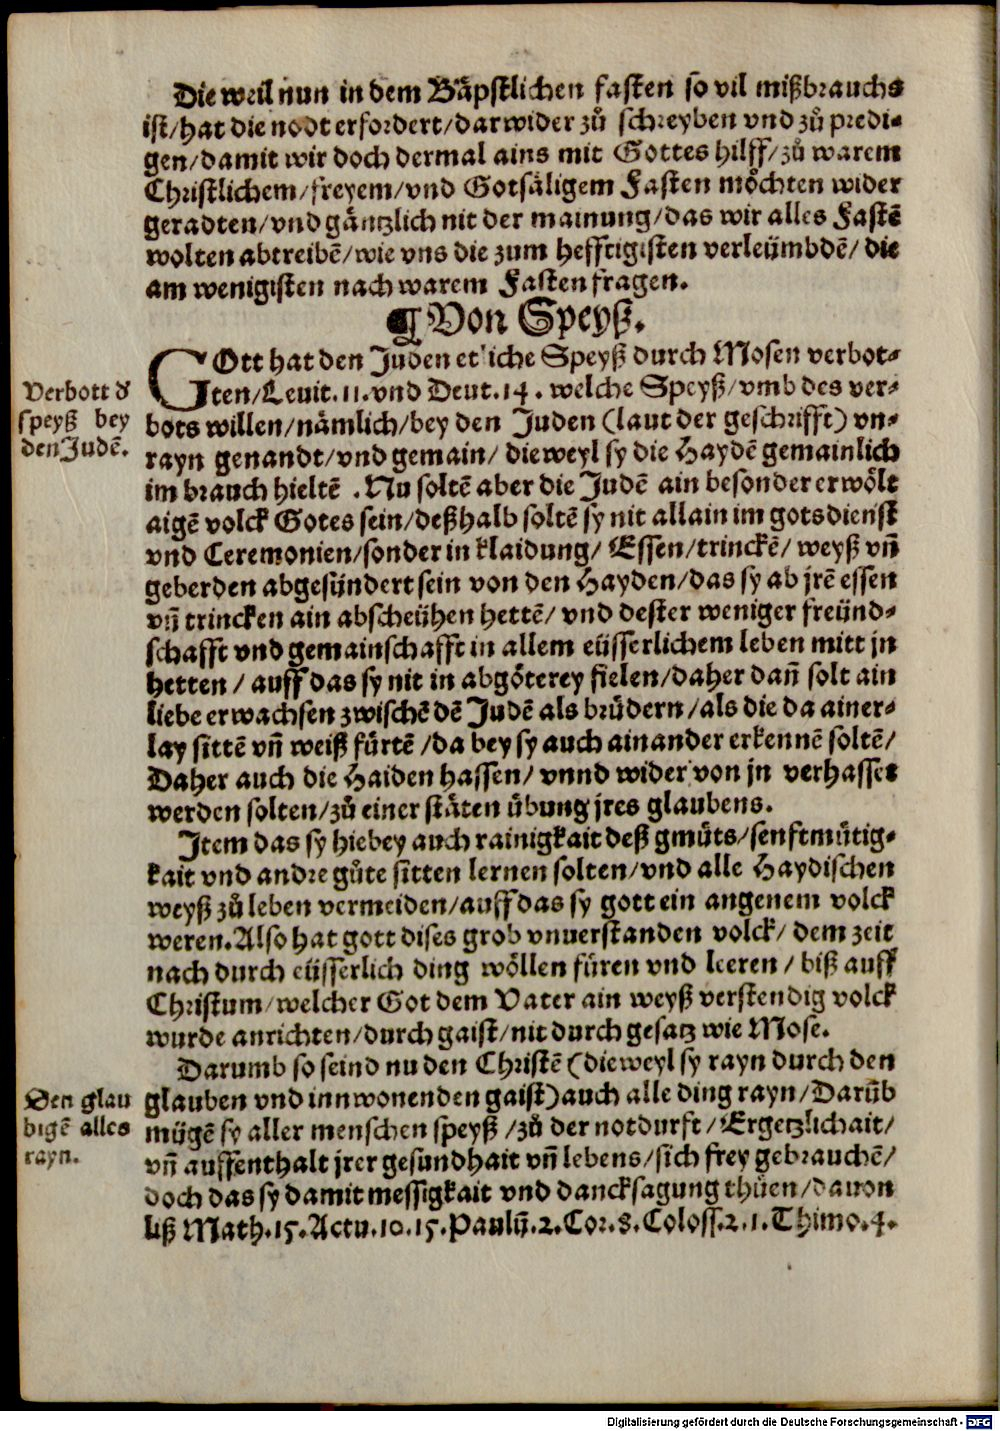 Die weil nun in dem Bäpstlichen fasten so vil mißbrauchs
ist/hat die nodt erfordert/darwider zů schreyben vnd zů predi-
gen/damit wir doch dermal ains mit Gottes hilff/zů warem
Christlichem/freyem/vnd Gotsäligem Fasten möchten wider
geradten/vnd gäntzlich nit der mainung/das wir alles Fastē
wolten abtreibē/wie vns die zum hefftigisten verleümbdē/die
am wenigisten nach warem Fasten fragen.
¶ Von Speyß.
GOtt hat den Juden etliche Speyß durch Mosen verbot-
ten/Leuit.11.vnd Deut.14. welche Speyß/vmb des ver-
Verbott d᷒
speyß bey
den Judē.
bots willen/nämlich/bey den Juden (laut der geschrifft) vn-
rayn genandt/vnd gemain/ dieweyl sy die Haydē gemainlich
im brauch hieltē .Nu soltē aber die Judē ain besonder erwölt
aigē volck Gotes sein/deßhalb soltē sy nit allain im gotsdienst
vnd Ceremonien/sonder in klaidung/ Essen/trinckē/ weyß vñ
geberden abgesündert sein von den Hayden/das sy ab jrē essen
vñ trincken ain abscheühen hettē/ vnd dester weniger freünd-
schafft vnd gemainschafft in allem eüsserlichem leben mitt jn
hetten / auff das sy nit in abgöterey fielen/daher dañ solt ain
liebe erwachsen zwischē dē Judē als brüdern/als die da ainer-
lay sittē vñ weiß fürtē /da bey sy auch ainander erkennē soltē/
Daher auch die Haiden hassen/ vnnd wider von jn verhasset
werden solten/zů einer stäten übung jres glaubens.
Item das sy hiebey auch rainigkait deß gmüts/senftmütig-
kait vnd andre gůte sitten lernen solten/vnd alle Haydischen
weyß zů leben vermeiden/auff das sy gott ein angenem volck
weren.Also hat gott dises grob vnuerstanden volck/ dem zeit
nach durch eüsserlich ding wöllen füren vnd leeren / biß auff
Christum/welcher Got dem Vater ain weyß verstendig volck
wurde anrichten/durch gaist/nit durch gesatz wie Mose.
Darumb so seind nu den Christē (dieweyl sy rayn durch den
Den glau
bigē alles
rayn.
glauben vnd innwonenden gaist) auch alle ding rayn/Darūb
mügē sy aller menschen speyß /zů der notdurft / Ergetzlichait/
vñ auffenthalt jrer gesundhait vñ lebens/sich frey gebrauchē/
doch das sy damit messigkait vnd dancksagung thüen/dauon
liß Math.15.Actu.10.15.Paulū.2.Cor.8.Coloss.2.1.Thimo.4.
Digitalisierung gefördert durch die Deutsche Forschungsgemeinschaft - DFG